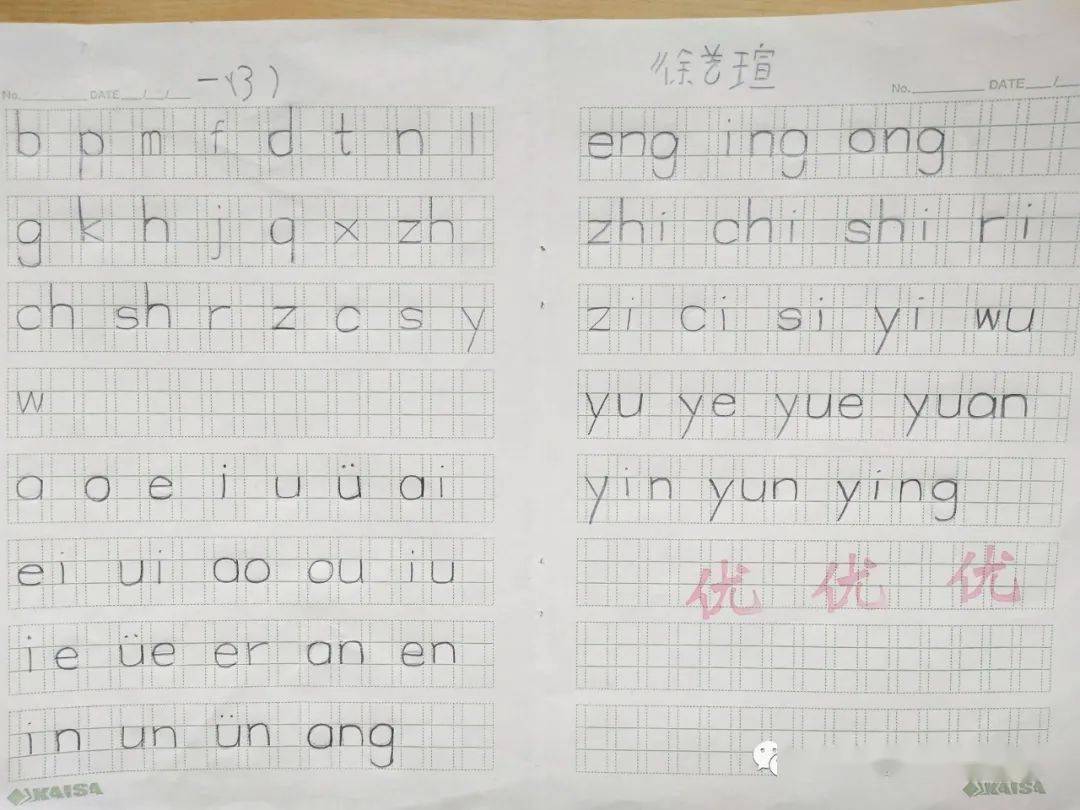 一(3)
No. DATE / /
b p m f d t n l
g k h j q x zh
ch sh r z c s y
w
a o e i u ü ai
ei ui ao ou iu
ie üe er an en
in un ün ang
KAISA
徐艺瑄
No. DATE /
eng ing ong
zhi chi shi ri
zi ci si yi wu
yu ye yue yuan
yin yun ying
优 优 优
KAISA